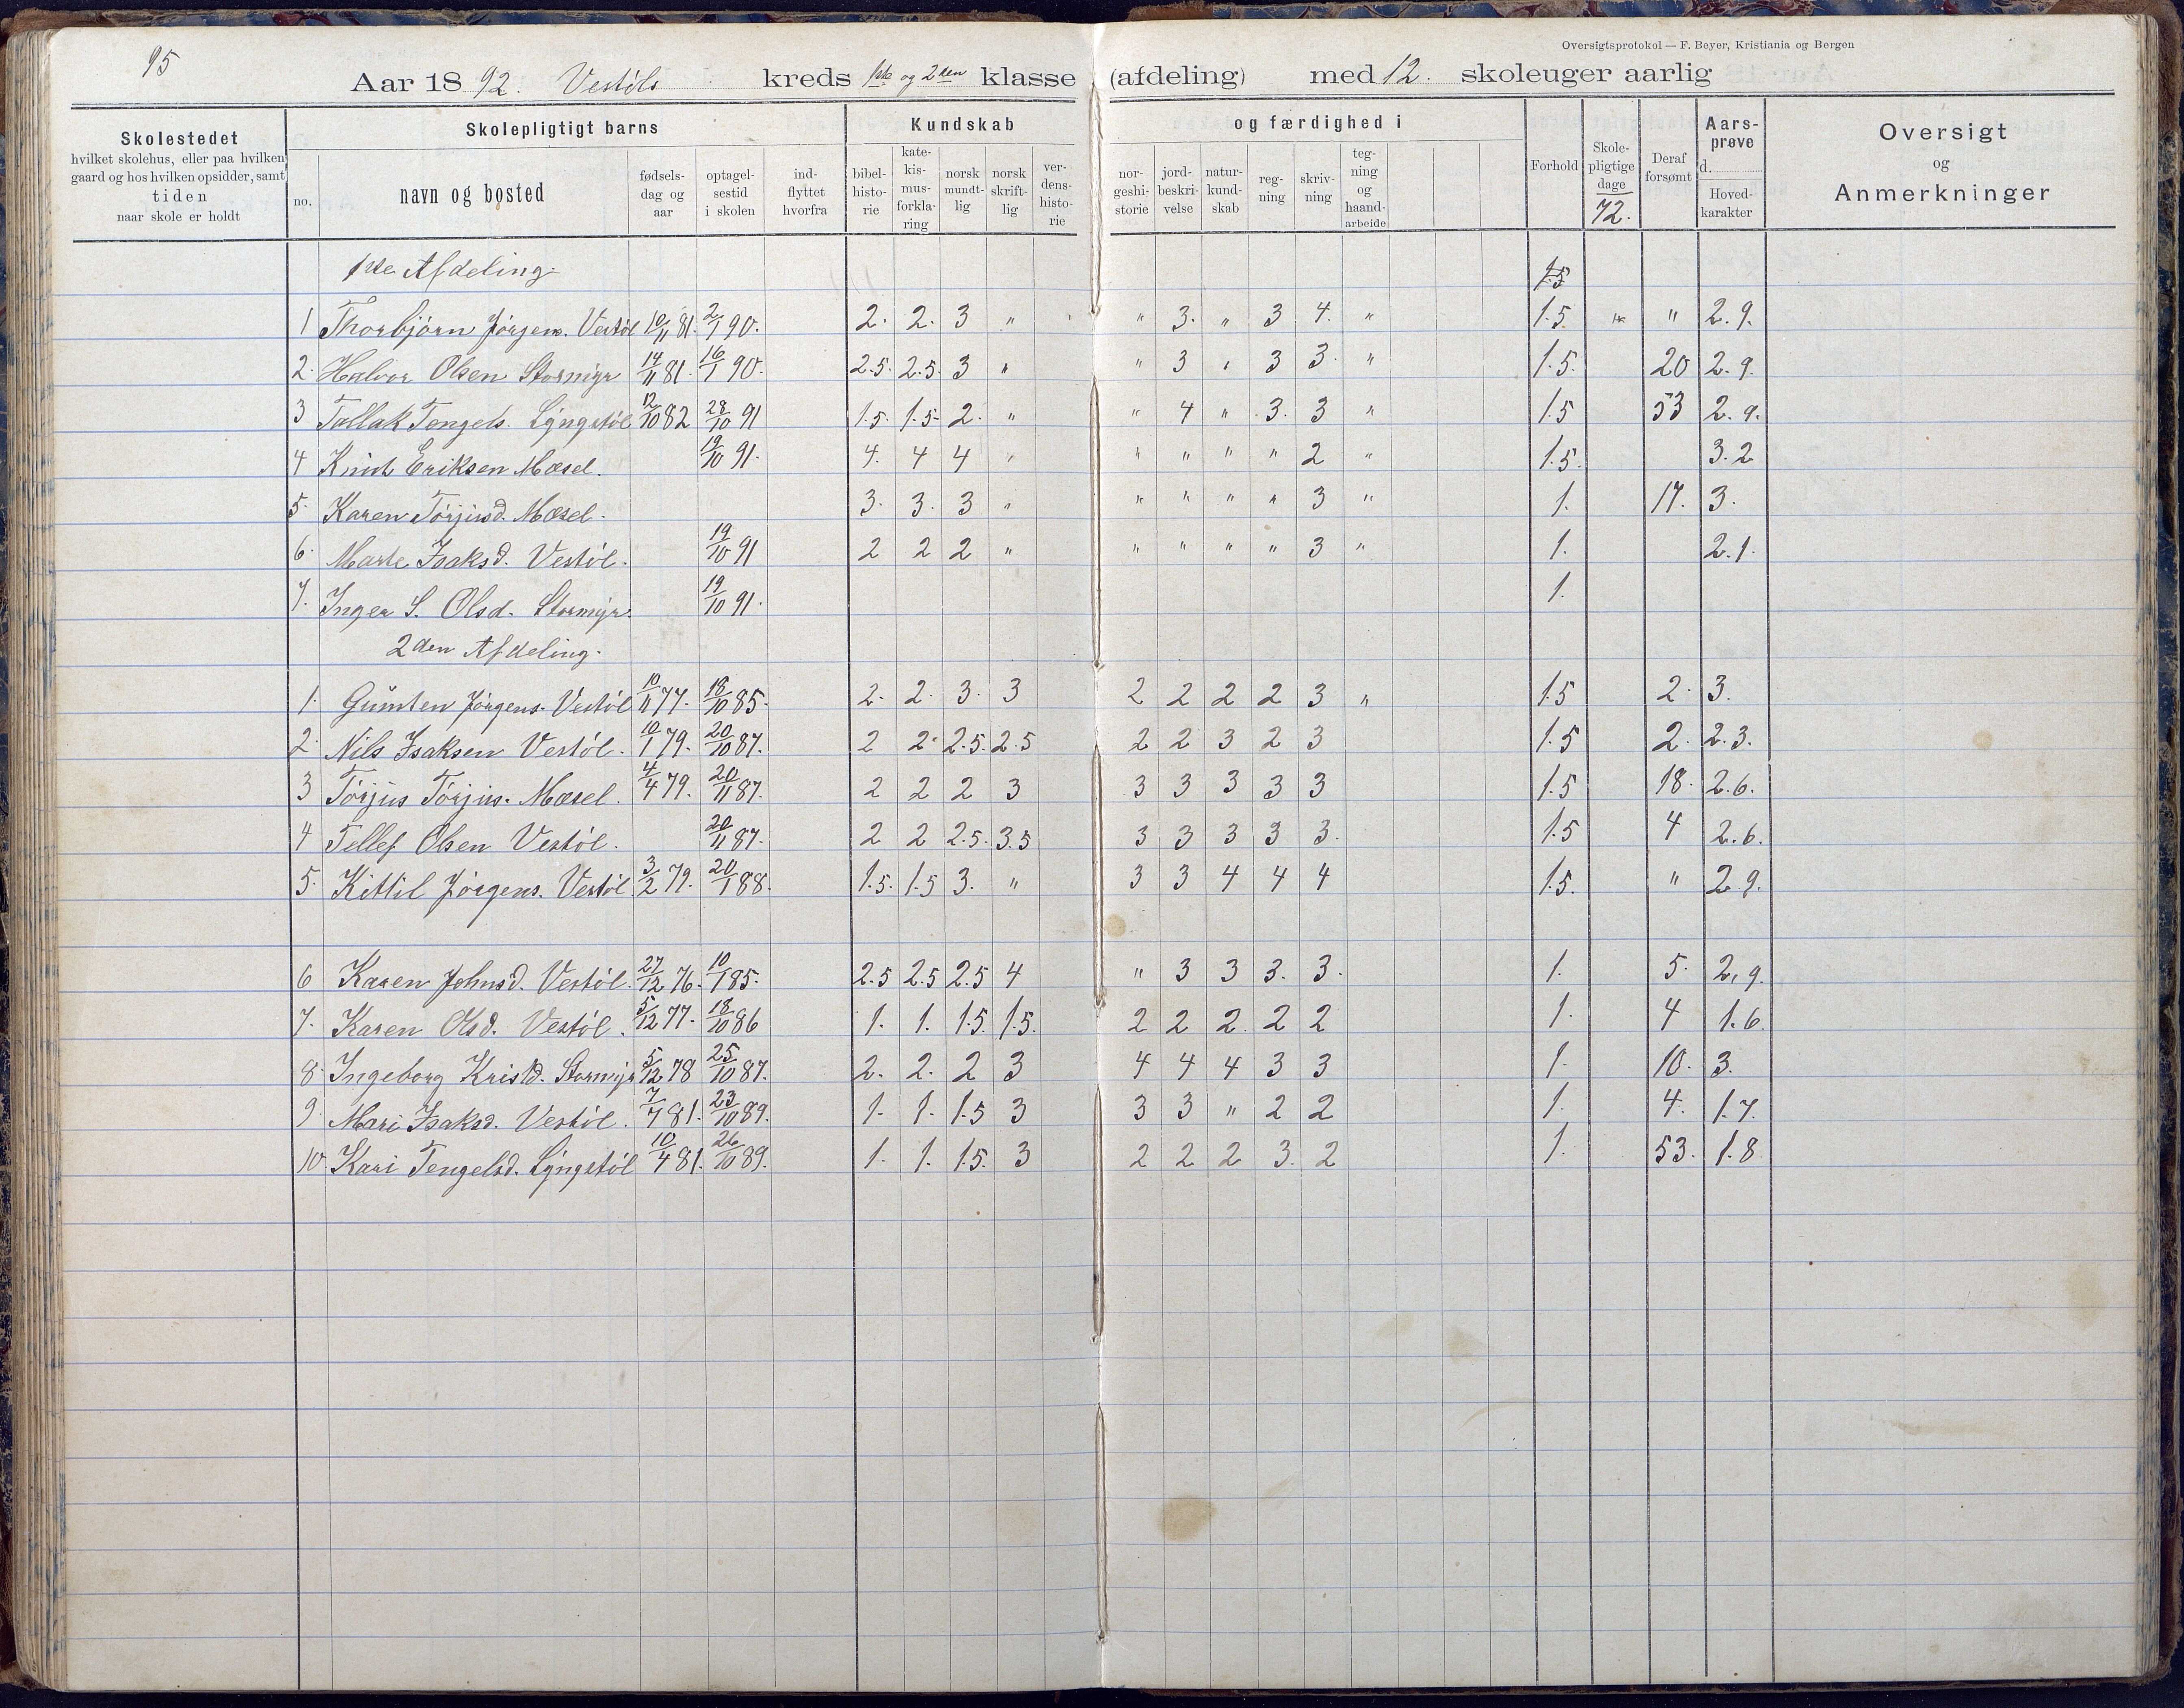 95
Oversigtsprotokol — F. Beyer, Kristiania og Bergen
Aar 1892. Vestöls kreds 1ste og 2den klasse (afdeling) med 12. skoleuger aarlig
Skolestedet
hvilket skolehus, eller paa hvilken
gaard og hos hvilken opsidder, samt
tiden
naar skole er holdt
Skolepligtigt barns
no.
navn og bosted
fødsels-
dag og
aar
optagel-
sestid
i skolen
ind-
flyttet
hvorfra
Kundskab
bibel-
histo-
rie
kate-
kis-
mus-
forkla-
ring
norsk
mundt-
lig
norsk
skrift-
lig
ver-
dens-
histo-
rie
og færdighed i
nor-
geshi-
storie
jord-
beskri-
velse
natur-
kund-
skab
reg-
ning
skriv-
ning
teg-
ning
og
haand-
arbeide
Forhold
Skole-
pligtige
dage
72.
Deraf
forsømt
Aars-
prøve
d.
Hoved-
karakter
Oversigt
og
Anmerkninger
1ste Afdeling. 1.5
1 Thorbjörn Jörgens. Vestöl 10/11 81. 2/1 90. 2. 2. 3 " " 3. " 3 4. " 1.5. " " 2.9.
2. Halvor Olsen Stormyr 14/11 81. 16/1 90. 2.5. 2.5. 3 " " 3 " 3 3. " 1.5. 20 2.9.
3 Tallak Tengels. Lyngstöl 12/10 82 28/10 91 1.5. 1.5. 2. " " 4 " 3. 3 " 1.5 53 2.9.
4 Knut Eriksen Mæsel. 19/10 91. 4. 4 4 " " " " " 2 " 1.5. 3.2
5. Karen Törjusd. Mæsel. 3. 3. 3 " " " " " 3 " 1. 17. 3.
6. Marte Isaksd. Vestöl. 19/10 91 2 2 2 " " " " " 3 " 1. 2.1.
7. Inger S. Olsd. Stormyr. 19/10 91. 1.
2den Afdeling.
1. Gunsten Jörgens. Vestöl 10/11 77. 18/10 85. 2. 2. 3. 3 2 2 2 2 3 " 1.5 2. 3.
2. Nils Isaksen Vestöl. 10/1 79. 20/10 87. 2 2. 2.5. 2.5 2 2 3 2 3 1.5 2. 2.3.
3 Törjus Törjus. Mæsel. 4/4 79. 20/11 87. 2 2 2 3 3 3 3 3 3 1.5 18. 2.6.
4 Tellef Olsen Vestöl. 20/11 87. 2 2 2.5. 3.5 3 3 3 3 3. 1.5 4 2.6.
5. Kittil Jörgens. Vestöl. 3/2 79. 20/1 88. 1.5. 1.5 3. " 3 3 4 4 4 1.5. " 2.9.
6 Karen Johnsd. Vestöl. 27/12 76. 10/1 85. 2.5 2.5 2.5 4 " 3 3 3. 3. 1. 5. 2.9.
7. Karen Olsd. Vestöl. 5/12 77. 18/10 86 1. 1. 1.5. 1.5. 2 2 2 2 2 1. 4 1.6.
8. Ingeborg Kristd. Stormyr 5/12 78 25/10 87. 2. 2. 2 3 4 4 4 3 3 1. 10. 3.
9 Mari Isaksd. Vestöl. 7/7 81. 23/10 89. 1. 1. 1.5 3 3 3 " 2 2 1. 4. 1.7.
10. Kari Tengelsd. Lyngstöl 10/4 81. 26/10 89. 1. 1. 1.5. 3 2 2 2 3. 2 1. 53. 1.8